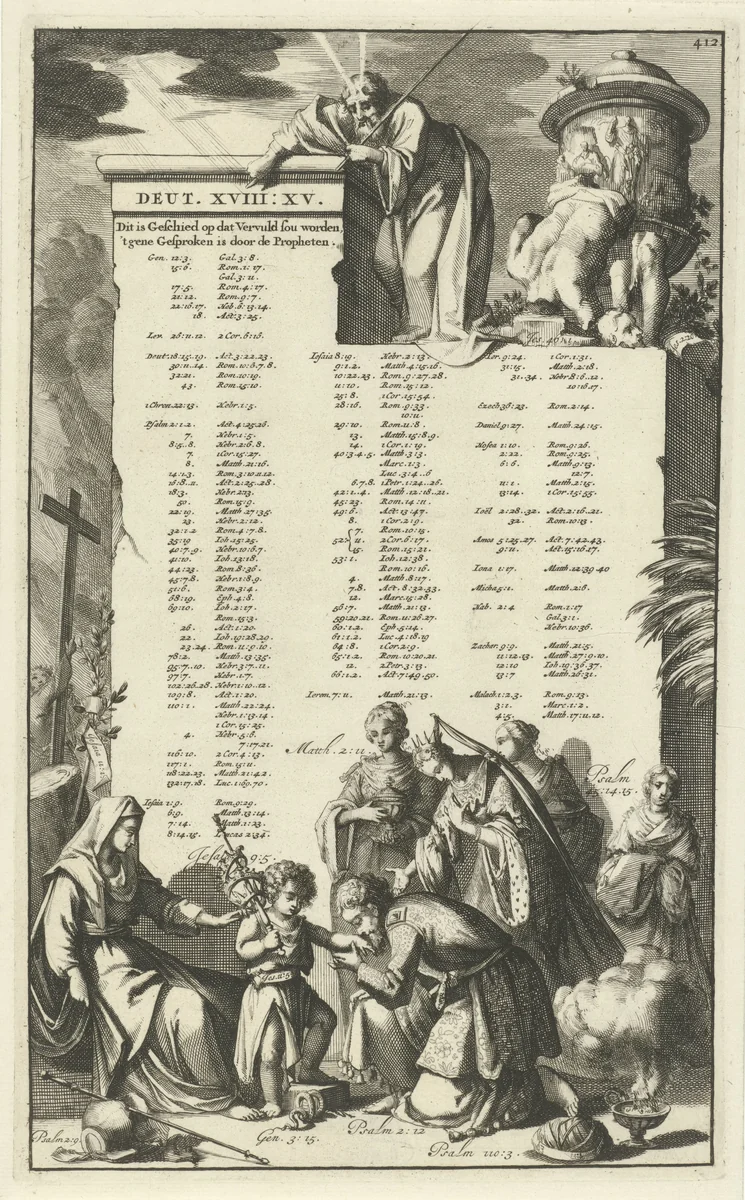 412
DEUT. XVIII: XV.
Dit is Geschied op dat Vervuld sou worden,
't gene Gesproken is door de Propheten.
Gen. 12:3. Gal. 3:8.
15:6. Rom. 1:17.
Gal. 3:11.
17:5. Rom. 4:17.
21:12. Rom. 9:7.
22:16.17. Heb. 6:13.14.
18. Act. 3:25.
Lev. 26:11.12. 2 Cor. 6:16.
Deut. 18:15.19. Act. 3:22.23.
30:11.14. Rom. 10:6.7.8.
32:21. Rom. 10:19.
43. Rom. 15:10.
1 Chron. 22:13. Hebr. 1:5.
Psalm 2:1.2. Act. 4:25.26.
7. Hebr. 1:5.
8:5..8. Hebr. 2:6.8.
7. 1 Cor. 15:27.
8. Matth. 21:16.
14:1.3. Rom. 3:10.11.12.
16:8..11. Act. 2:25..28.
18:3. Hebr. 2:13.
50. Rom. 15:9.
22:19. Matth. 27:35.
23. Hebr. 2:12.
32:1.2 Rom. 4:7.8.
35:19 Ioh. 15:25.
40:7..9. Hebr. 10:6.7.
41:10. Ioh. 13:18.
44:23. Rom. 8:36.
45:7.8. Hebr. 1:8.9.
51:6. Rom. 3:4.
68:19. Eph. 4:8.
69:10. Ioh. 2:17.
Rom. 15:3.
26. Act. 1:20.
22. Ioh. 19:28.29.
23.24. Rom. 11:9.10.
78:2. Matth. 13:35.
95:7..10. Hebr. 3:7..11.
97:7. Hebr. 1:7.
102:26..28. Hebr. 1:10..12.
109:8. Act. 1:20.
110:1. Matth. 22:24.
Hebr. 1:13.14
1 Cor. 15:25.
4. Hebr. 5:6.
7:17.21.
116:10. 2 Cor. 4:13.
117:1. Rom. 15:11.
118:22.23. Matth. 21:42.
132:17.18. Luc. 1:69.70.
Iesaia 1:9. Rom. 9:29.
6:9. Matth. 13:14.
7:14. Matth. 1:23.
8:14.15. Lucas 2:34.
Iesaia 8:19. Hebr. 2:13.
9:1.2. Matth. 4:15.16.
10:22.23. Rom. 9:27.28.
11:10. Rom. 15:12.
25:8. 1 Cor. 15:54.
28:16. Rom. 9:33.
10:11.
29:10. Rom. 11:8.
13. Matth. 15:8.9.
14. 1 Cor. 1:19.
40:3.4.5. Matth. 3:3.
Marc. 1:3.
Luc. 3:4..6
6.7.8. 1 Petr. 1:24..26.
42:1..4. Matth. 12:18..21.
45:23. Rom. 14:11.
49:6. Act. 13:47.
8. 1 Cor. 2:9.
7. Rom. 10:15.
52 11. 2 Cor. 6:17.
15. Rom. 15:21.
53:1. Ioh. 12:38.
Rom. 10:16.
4. Matth. 8:17.
7.8. Act. 8:32.33.
12. Marc. 15:28.
56:7. Matth. 21:13.
59:20.21. Rom. 11:26.27.
60:1.2. Eph. 5:14.
61:1.2. Luc. 4:18.19
64:8. 1 Cor. 2:9.
65:1.2. Rom. 10:20.21.
12. 2 Petr. 3:13.
66:1.2. Act. 7:49.50.
Ierem. 7:11. Matth. 21:13.
Ier. 9:24. 1 Cor. 1:31.
31:15. Matth. 2:18.
31.34. Hebr. 8:6..12.
10:16.17.
Ezech. 36:23. Rom. 2:14.
Daniel 9:27. Matth. 24:15.
Hosea 1:10. Rom. 9:26.
2:22. Rom. 9:25.
6:6. Matth. 9:13.
12:7.
11:1. Matth. 2:15.
13:14. 1 Cor. 15:55.
Ioël 2:28..32. Act. 2:16..21.
32. Rom. 10:13.
Amos 5:25..27. Act. 7:42.43.
9:11. Act. 15:16.17.
Iona 1:17. Matth. 12:39.40
Micha 5:1. Matth. 2:6.
Hab. 2:4 Rom. 1:17
Gal. 3:11.
Hebr. 10:36.
Zachar. 9:9. Matth. 21:5.
11:12.13. Matth. 27:9.10.
12:10 Ioh. 19:36.37.
13:7 Matth. 26:31.
Malach. 1:2.3. Rom. 9:13.
3:1. Marc. 1:2.
4:5. Matth. 17:11.12.
Matth. 2:11.
Psalm
45:14.15.
Jesai 9:5.
Psalm 2:9
Gen. 3:15.
Psalm 2:12
Psalm 110:3.